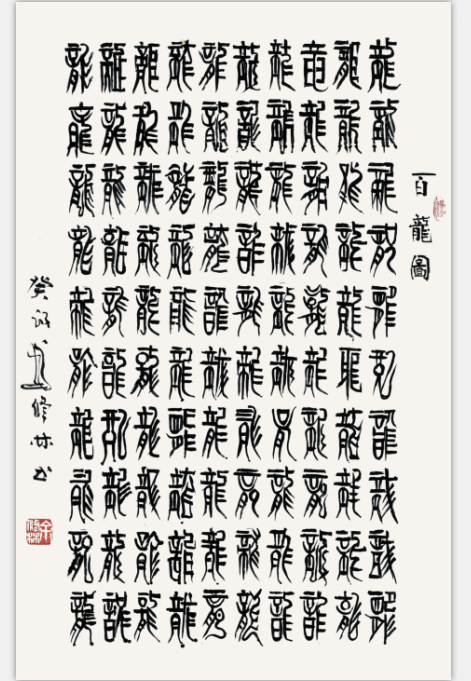 百龍圖
龍龍龍龍龍龍龍龍龍龍
龍龍龍龍龍龍龍龍龍龍
龍龍龍龍龍龍龍龍龍龍
龍龍龍龍龍龍龍龍龍龍
龍龍龍龍龍龍龍龍龍龍
龍龍龍龍龍龍龍龍龍龍
龍龍龍龍龍龍龍龍龍龍
龍龍龍龍龍龍龍龍龍龍
龍龍龍龍龍龍龍龍龍龍
龍龍龍龍龍龍龍龍龍龍
癸修林书